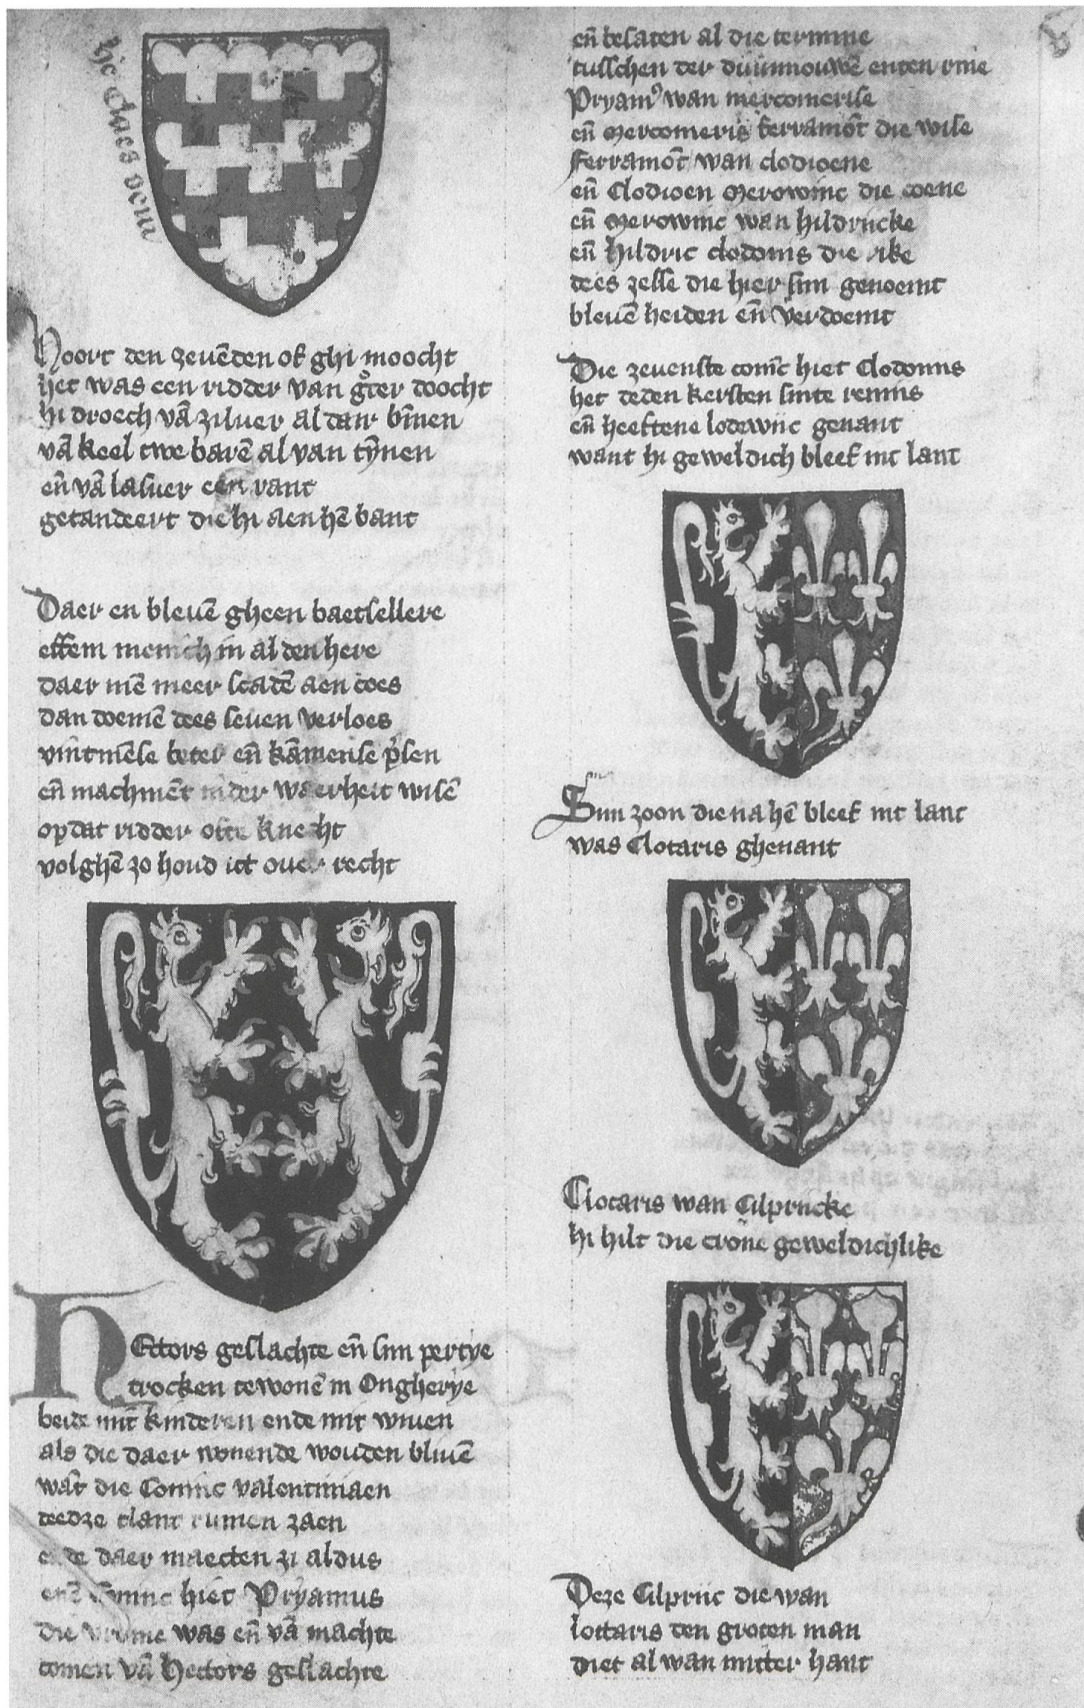 hie Claes vem
Hoort den zevēden of ghi moocht
het was een ridder van gᵒter doocht
hi droech vā zilver al dair bīnen
vā keel twe barē al van tȳnen
eñ vā lasuer een rant
getandeert die hi aen hē bant
Daer en blevē gheen baetsellere
effem menich in al den here
daer mē meer scadē aen coes
dan doemē dees seven verloes
vintmēse beter eñ kāmense pᵢsen
eñ machmēt in der waerheit wisē
op dat ridder ofte knecht
volghē zo houd ict over recht
HEctors geslachte eñ sijn pertye
trocken te wonē in Ongherye
beide mit kinderen ende mit wiven
als die daer wonende wouden blivē
wāt die Coninc valentiniaen
deedze tlant rumen zaen
ende daer maecten zi aldus
enē coninc hiet Pryamus
die vrome was eñ vā machte
comen vā Hectors geslachte
eñ besaten al die termine
tusschen der duunnouwē enten rine
Pryamꝰ wan mercomerise
eñ Mercomeris ferramōt die wise
Ferramōt wan clodioene
eñ Clodioen Merowinc die coene
eñ Merowinc wan hildricke
eñ hildric clodovis die rike
dees zesse die hier sijn genoemt
blevē heiden eñ verdoemt
Die zevenste coninc hiet Clodovis
het deden kersten sinte remijs
eñ heeftene lodewijc genant
want hi geweldich bleef int lant
Sijn zoon die na hē bleef int lant
was Clotaris ghenant
Clotaris wan Cilpricke
hi hilt die crōne geweldichlike
Deze Cilpric die wan
lottaris den groten man
diet al wan mitter hant